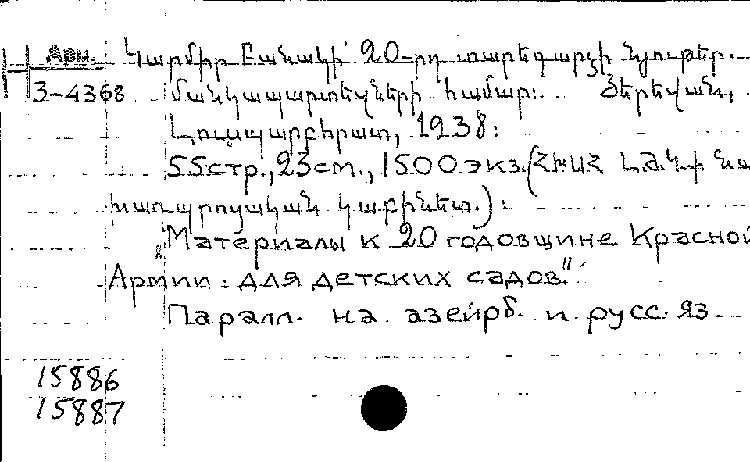 Арм. Կարմիր Բանակի 20-րդ տարեդարձի նյութեր.
3-4368 մանկապարտեզների համար: Յերեվան,
Լուսպարբհրատ, 1938:
55стр., 23см., 1500экз. (ՀԽՍՀ Լ.Ժ.Կ-ի
կաբինետ.):
„Материалы к 20 годовщине Красной
Армии: для детских садов"
Паралл. на азейрб. и русс. яз.
15886
15887